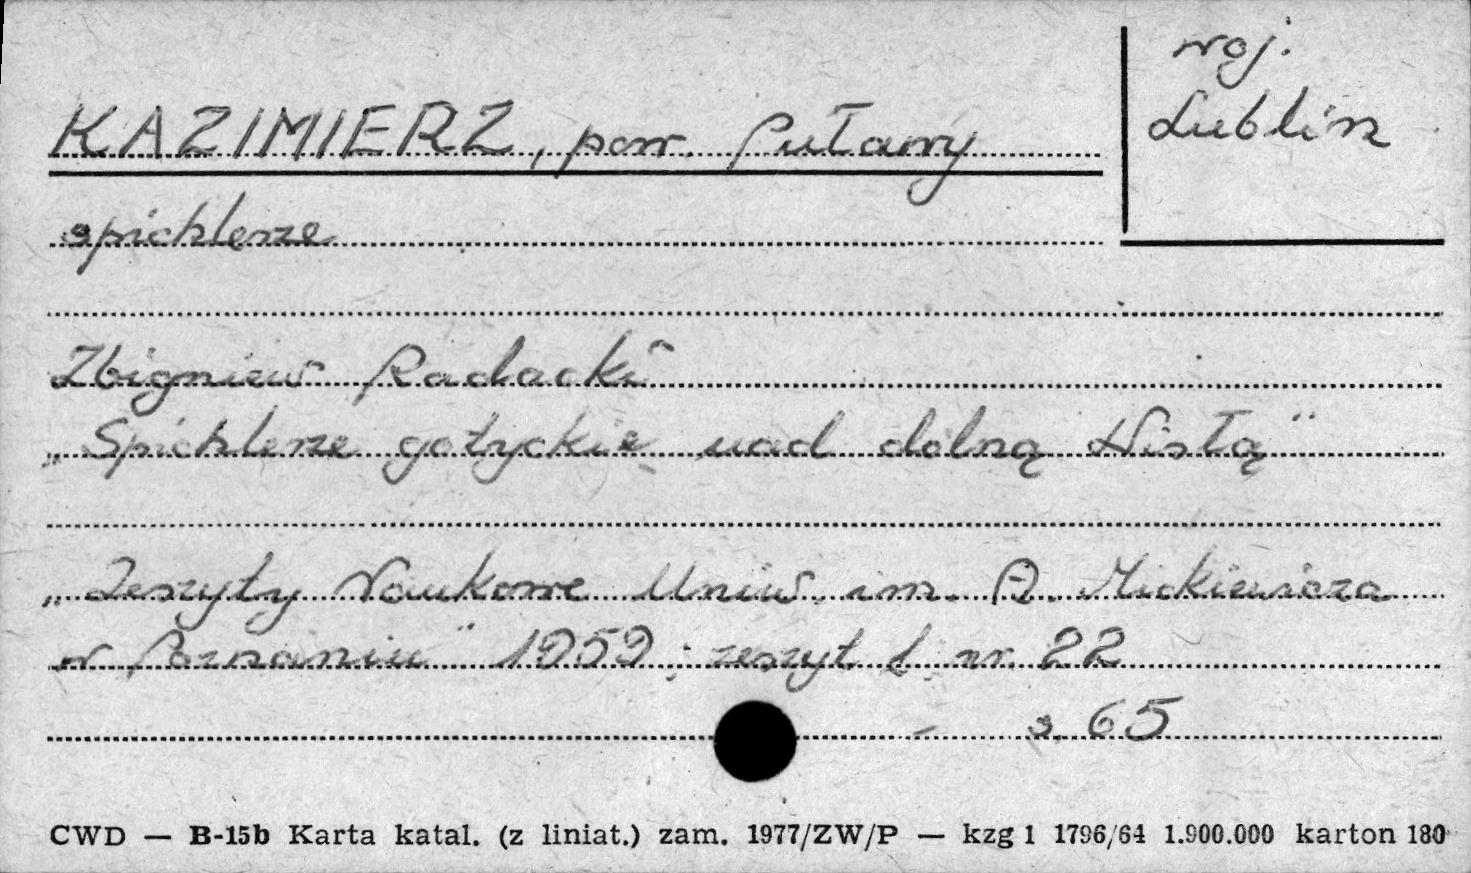 woj.
Lublin
KAZIMIERZ, pow. Puławy
spichlerze
Zbigniew Radacki
„Spichlerze gotyckie nad dolną Wisłą"
„Zeszyty Naukowe Uniw. im. A. Mickiewicza
w Poznaniu" 1959; zeszyt 1 nr. 22
s. 65
CWD — B-15b Karta katal. (z liniat.) zam. 1977/ZW/P — kzg 1 1796/64 1.900.000 karton 180